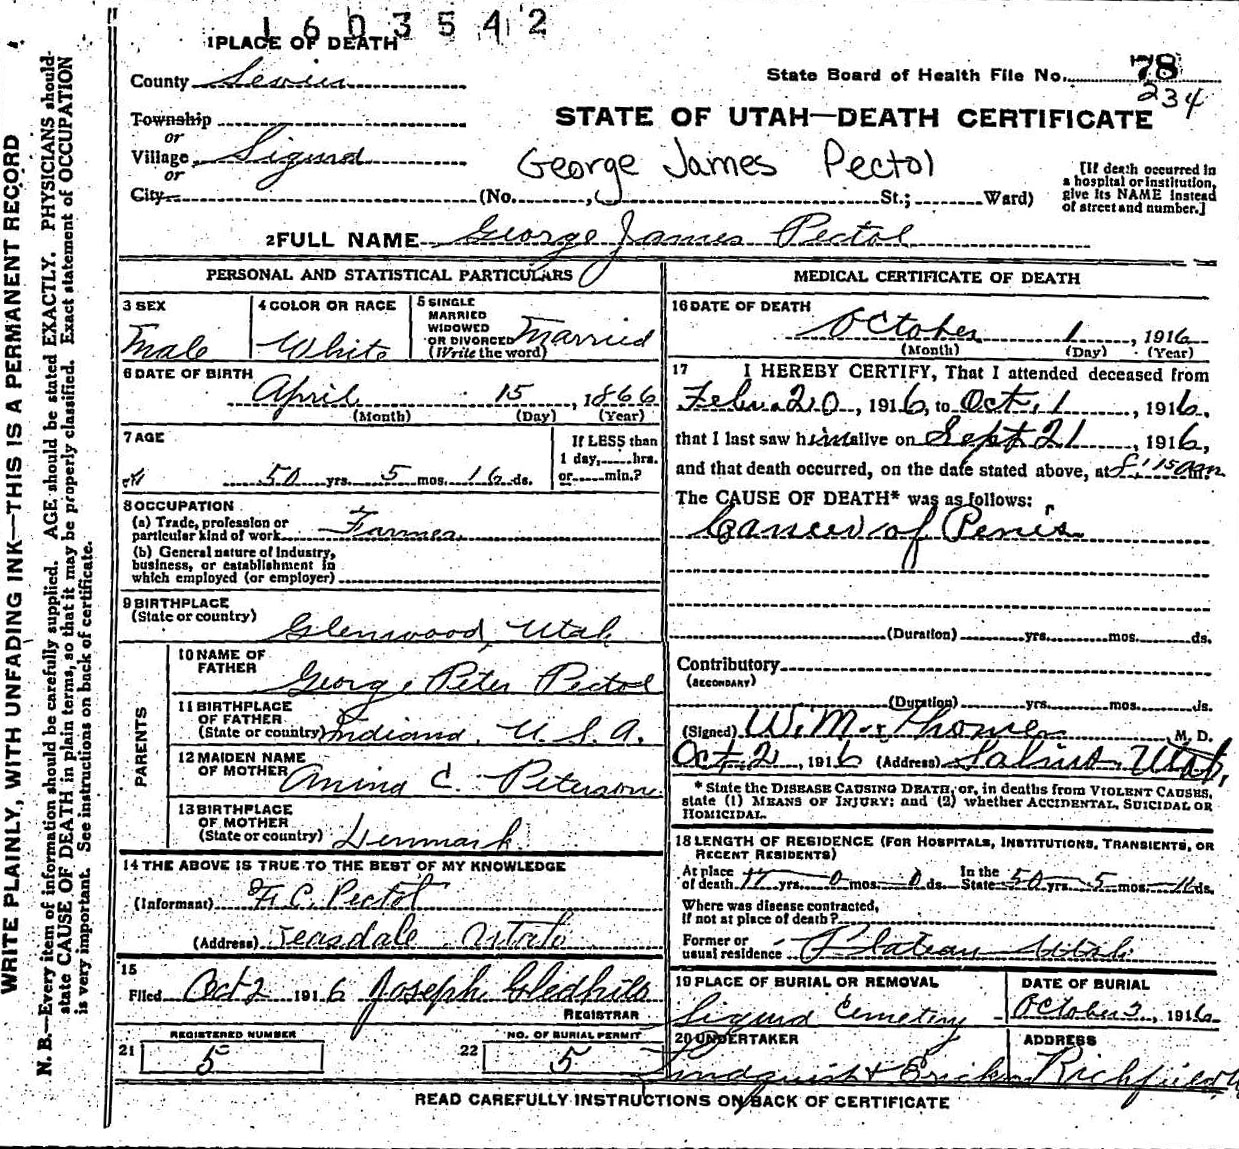 1603542
1 PLACE OF DEATH
County Sevier
State Board of Health File No. 78
234
Township
or
Village Sigurd
or
City
STATE OF UTAH—DEATH CERTIFICATE
George James Pectol
(No. St.; Ward)
[If death occurred in
a hospital or institution,
give its NAME instead
of street and number.]
2 FULL NAME George James Pectol
PERSONAL AND STATISTICAL PARTICULARS
3 SEX
Male
4 COLOR OR RACE
White
5 SINGLE
MARRIED
WIDOWED
OR DIVORCED
(Write the word)
Married
6 DATE OF BIRTH
April 15, 1866
(Month) (Day) (Year)
7 AGE
50 yrs. 5 mos. 16 ds.
If LESS than
1 day, hrs.
or min.?
8 OCCUPATION
(a) Trade, profession or
particular kind of work Farmer
(b) General nature of Industry,
business, or establishment in
which employed (or employer)
9 BIRTHPLACE
(State or country)
Glenwood, Utah
PARENTS
10 NAME OF
FATHER
George Peter Pectol
11 BIRTHPLACE
OF FATHER
(State or country) Indiana, U.S.A.
12 MAIDEN NAME
OF MOTHER
C. Peterson
13 BIRTHPLACE
OF MOTHER
(State or country) Denmark
14 THE ABOVE IS TRUE TO THE BEST OF MY KNOWLEDGE
(Informant) Pectol
(Address) Teasdale Utah
15
Filed Oct 2 1916 Joseph Gledhill
REGISTRAR
REGISTERED NUMBER
21 5
NO. OF BURIAL PERMIT
22 5
MEDICAL CERTIFICATE OF DEATH
16 DATE OF DEATH
October 1, 1916
(Month) (Day) (Year)
17 I HEREBY CERTIFY, That I attended deceased from
Febu. 20, 1916, to Oct. 1, 1916,
that I last saw him alive on Sept 21, 1916,
and that death occurred, on the date stated above, at m.
The CAUSE OF DEATH* was as follows:
Cancer of Penis
(Duration) yrs. mos. ds.
Contributory
(SECONDARY)
(Duration) yrs. mos. ds.
(Signed) M. D.
Oct 2, 1916 (Address) Salina, Utah,
* State the DISEASE CAUSING DEATH, or, in deaths from VIOLENT CAUSES,
state (1) MEANS OF INJURY; and (2) whether ACCIDENTAL, SUICIDAL OR
HOMICIDAL.
18 LENGTH OF RESIDENCE (FOR HOSPITALS, INSTITUTIONS, TRANSIENTS, OR
RECENT RESIDENTS)
At place
of death yrs. 0 mos. 0 ds.
In the
State 50 yrs. 5 mos. ds.
Where was disease contracted,
if not at place of death?
Former or
usual residence Plateau Utah
19 PLACE OF BURIAL OR REMOVAL
Sigurd Cemetery
DATE OF BURIAL
October 3, 1916
20 UNDERTAKER
ADDRESS
Richfield
READ CAREFULLY INSTRUCTIONS ON BACK OF CERTIFICATE
WRITE PLAINLY, WITH UNFADING INK—THIS IS A PERMANENT RECORD
N. B.—Every item of information should be carefully supplied. AGE should be stated EXACTLY. PHYSICIANS should
state CAUSE OF DEATH in plain terms, so that it may be properly classified. Exact statement of OCCUPATION
is very important. See instructions on back of certificate.